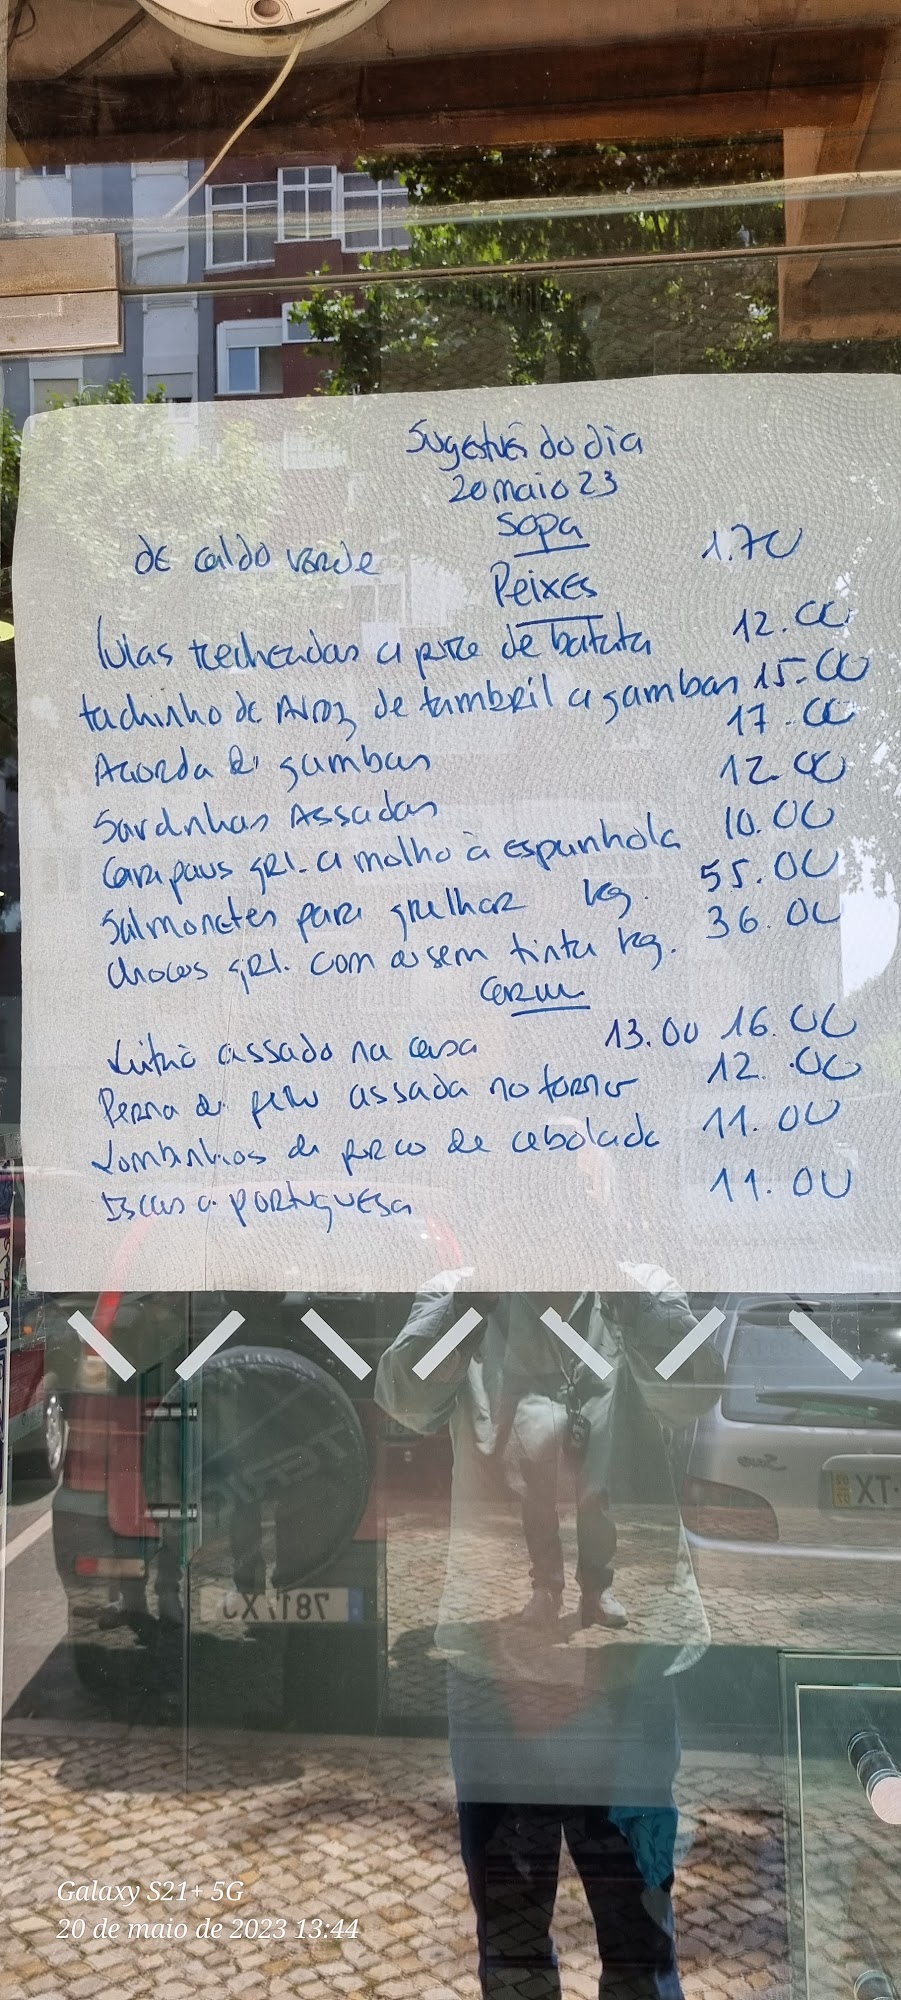 Sugestão do dia
20 maio 23
Sopa
de caldo verde 1.70
Peixes
lulas recheadas c/ pure de batata 12.00
tachinho de Arroz de tamboril c/ gambas 15.00
Açorda de gambas 17.00
Sardinhas Assadas 12.00
Carapaus grl. c/ molho à espanhola 10.00
Salmonetes para grelhar kg. 55.00
chocos grl. com ou sem tinta kg. 36.00
Carne
Leitão assado na casa 13.00 16.00
Perna de peru assada no forno 12.00
Lombinhos de porco de cebolada 11.00
Iscas à portuguesa 11.00
TERIOS
7817XJ
Saxo
XT
Galaxy S21+ 5G
20 de maio de 2023 13:44